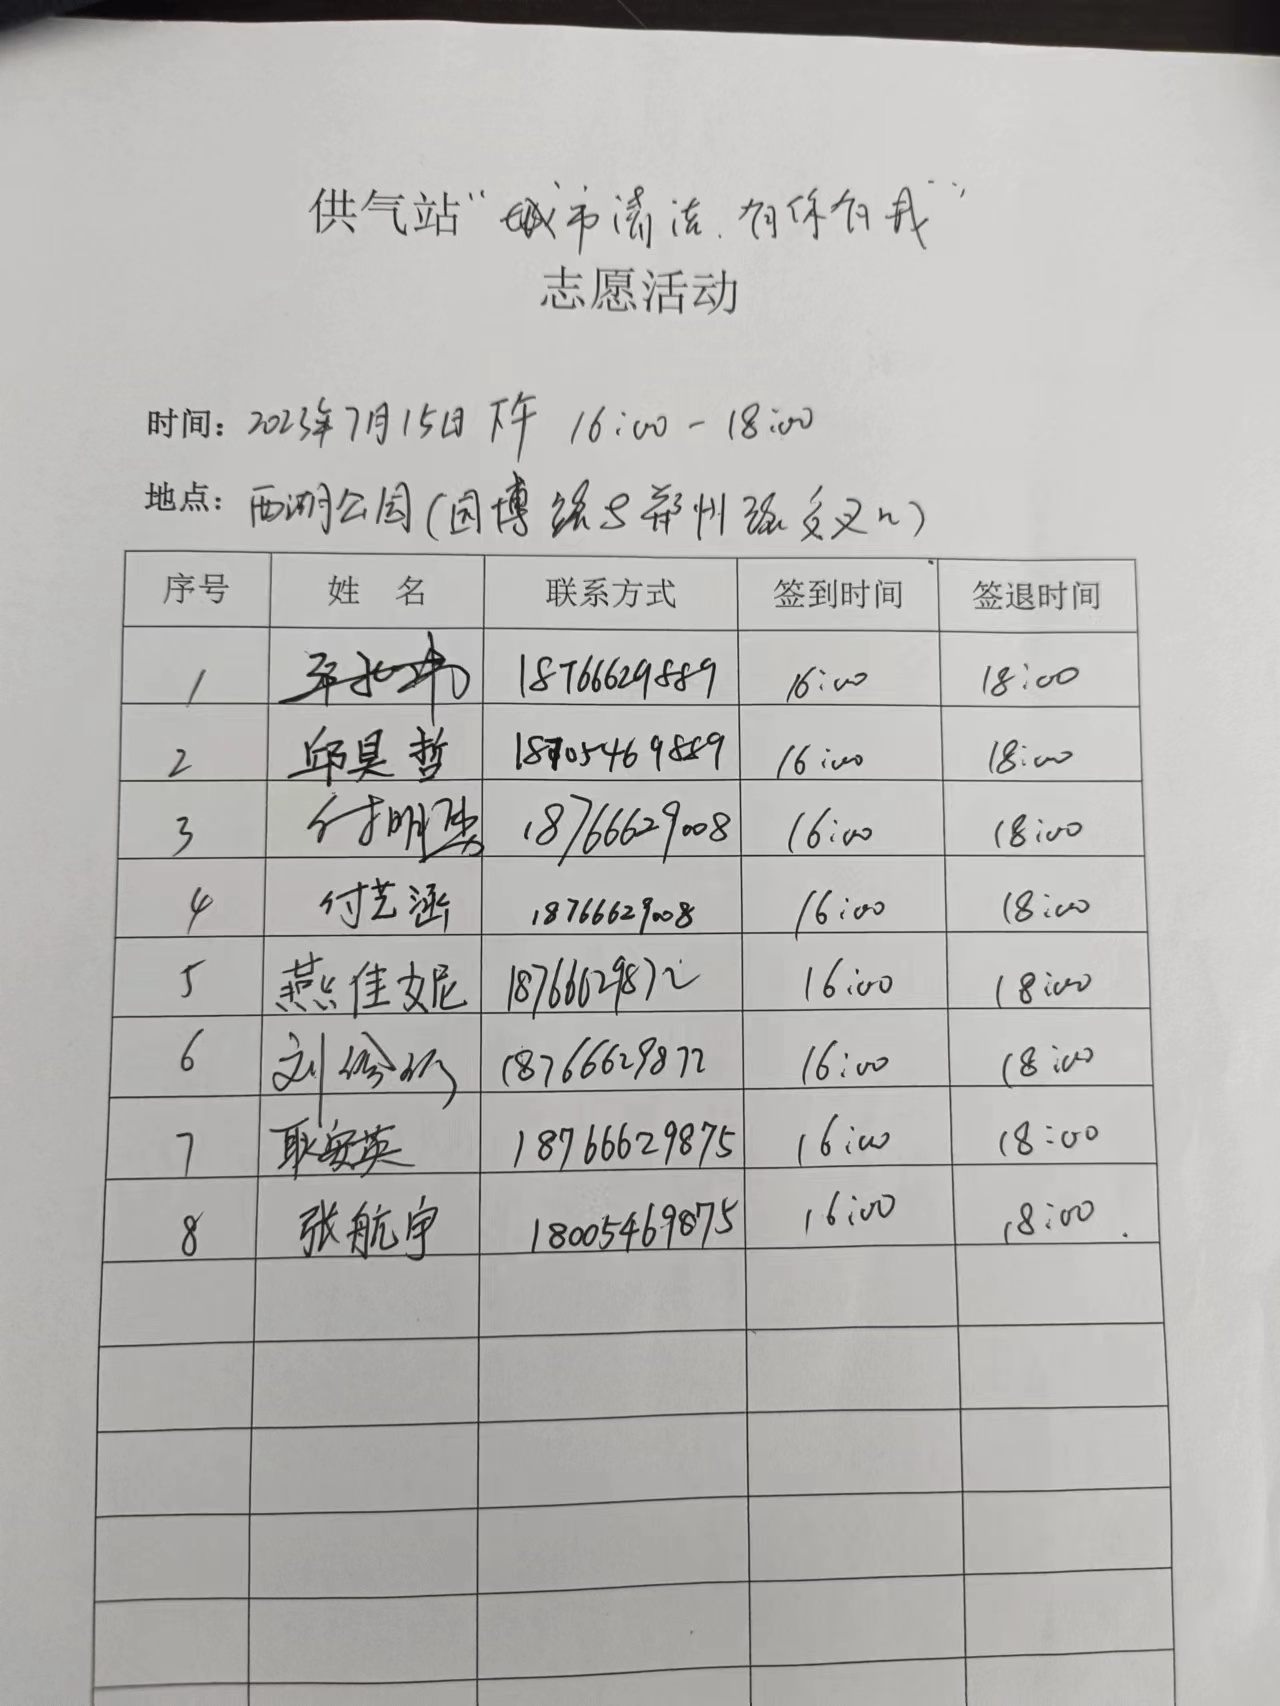 供气站“城市清洁.有你有我”
志愿活动
时间：2023年7月15日下午 16:00-18:00
地点：西湖公园(园博路与郑州路交叉口)
序号 姓 名 联系方式 签到时间 签退时间
1 18766629889 16:00 18:00
2 邱昊哲 18705469889 16:00 18:00
3 付明杰 18766629008 16:00 18:00
4 付艺涵 18766629008 16:00 18:00
5 燕佳妮 18766629872 16:00 18:00
6 刘 18766629872 16:00 18:00
7 耿安英 18766629875 16:00 18:00
8 张航宇 18005469875 16:00 18:00